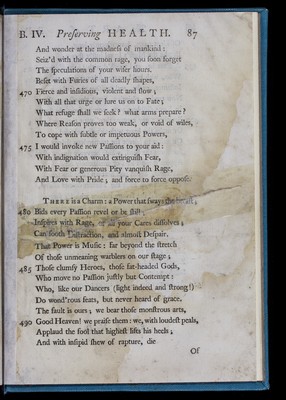 B. IV. Preſerving HEALTH. 87
And wonder at the madneſs of mankind:
Seiz'd with the common rage, you ſoon forget
The ſpeculations of your wiſer hours.
Beſet with Furies of all deadly ſhapes,
470 Fierce and inſidious, violent and ſlow;
With all that urge or lure us on to Fate;
What refuge ſhall we ſeek? what arms prepare?
Where Reaſon proves too weak, or void of wiles,
To cope with ſubtle or impetuous Powers,
475 I would invoke new Paſſions to your aid:
With indignation would extinguiſh Fear,
With Fear or generous Pity vanquiſh Rage,
And Love with Pride; and force to force oppoſe.
THERE is a Charm: a Power that ſways the breaſt;
480 Bids every Paſſion revel or be ſtill;
Inſpires with Rage, or all your Cares diſſolves;
Can ſooth Diſtraction, and almoſt Deſpair.
That Power is Muſic: far beyond the ſtretch
Of thoſe unmeaning warblers on our ſtage;
485 Thoſe clumſy Heroes, thoſe fat-headed Gods,
Who move no Paſſion juſtly but Contempt:
Who, like our Dancers (light indeed and ſtrong!)
Do wond'rous feats, but never heard of grace.
The fault is ours; we bear thoſe monſtrous arts,
490 Good Heaven! we praiſe them: we, with loudeſt peals,
Applaud the fool that higheſt lifts his heels;
And with inſipid ſhew of rapture, die
Of